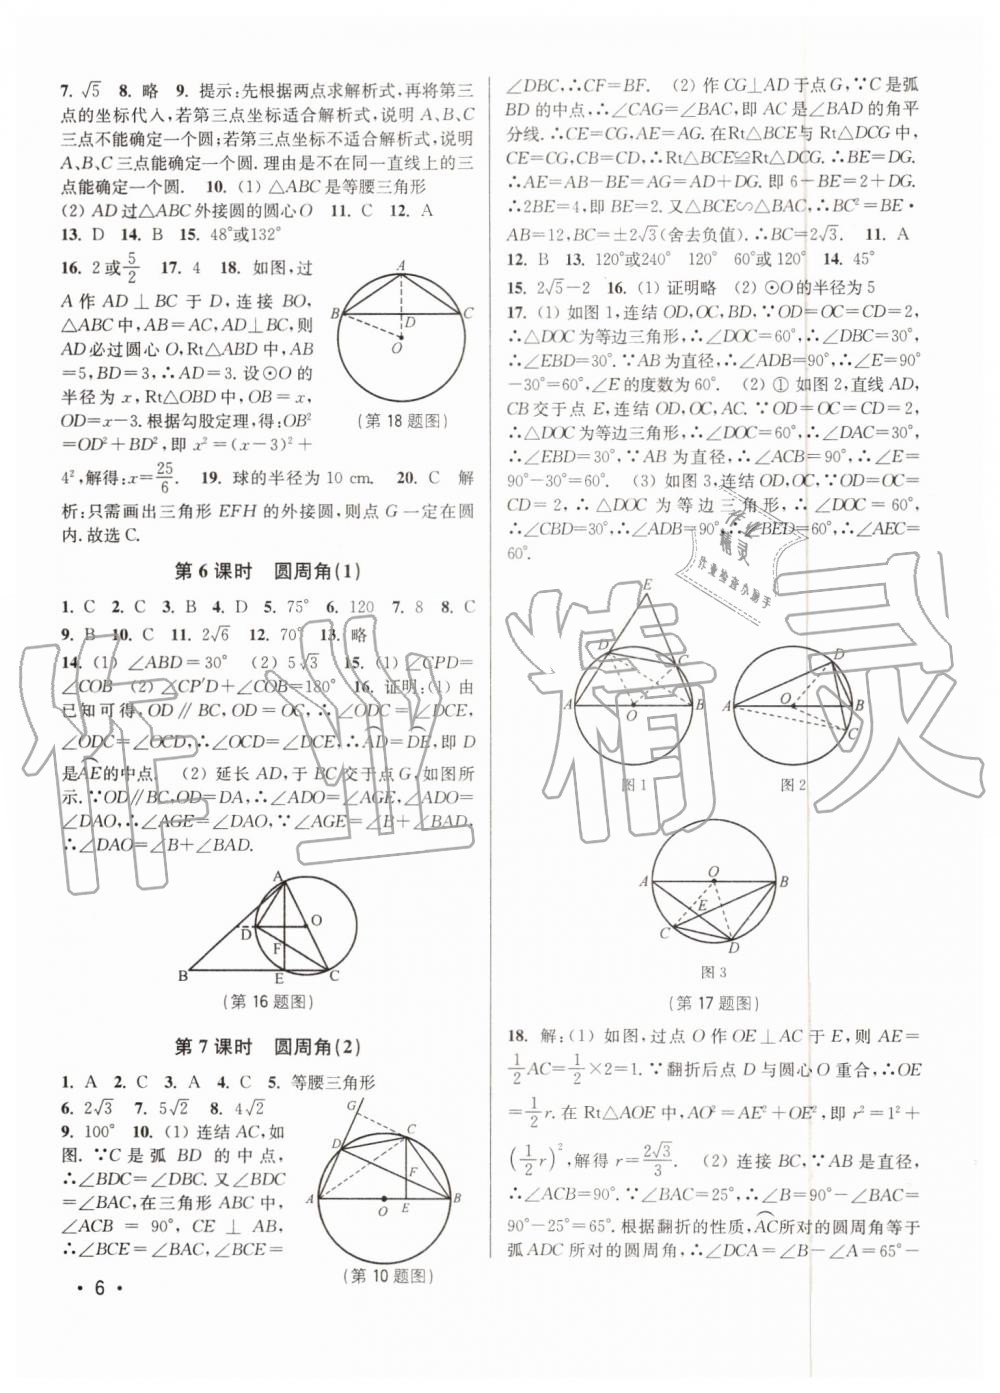 7. √5　8. 略　9. 提示:先根据两点求解析式,再将第三
点的坐标代入,若第三点坐标适合解析式,说明 A、B、C
三点不能确定一个圆;若第三点坐标不适合解析式,说明
A、B、C 三点能确定一个圆. 理由是不在同一直线上的三
点能确定一个圆.　10. (1) △ABC 是等腰三角形
(2) AD 过△ABC 外接圆的圆心 O　11. C　12. A
13. D　14. B　15. 48°或132°
16. 2 或 5/2　17. 4　18. 如图,过
A 作 AD ⊥ BC 于 D, 连接 BO,
△ABC 中, AB = AC, AD⊥BC, 则
AD 必过圆心 O, Rt△ABD 中, AB
=5, BD=3, ∴AD=3. 设⊙O 的
半径为 x, Rt△OBD 中, OB = x,
OD=x−3. 根据勾股定理,得:OB²
=OD²+BD², 即 x²=(x−3)²+
4², 解得: x=25/6.　19. 球的半径为 10 cm.　20. C　解
析:只需画出三角形 EFH 的外接圆,则点 G 一定在圆
内. 故选 C.
A
B
D
C
O
(第 18 题图)
第 6 课时　圆周角(1)
1. C　2. C　3. B　4. D　5. 75°　6. 120　7. 8　8. C
9. B　10. C　11. 2√6　12. 70°　13. 略
14. (1) ∠ABD=30°　(2) 5√3　15. (1) ∠CPD=
∠COB　(2) ∠CP′D+∠COB=180°　16. 证明:(1) 由
已知可得, OD∥BC, OD=OC, ∴∠ODC=∠DCE,
∠ODC=∠OCD, ∴∠OCD=∠DCE, ∴AD=DE, 即 D
是AE的中点.　(2) 延长 AD, 于 BC 交于点 G, 如图所
示. ∵OD∥BC, OD=DA, ∴∠ADO=∠AGE, ∠ADO=
∠DAO, ∴∠AGE=∠DAO, ∵∠AGE=∠B+∠BAD,
∴∠DAO=∠B+∠BAD.
A
D
O
F
B
E
C
(第 16 题图)
第 7 课时　圆周角(2)
1. A　2. C　3. A　4. C　5. 等腰三角形
6. 2√3　7. 5√2　8. 4√2
9. 100°　10. (1) 连结 AC, 如
图. ∵C 是弧 BD 的中点,
∴∠BDC=∠DBC. 又∠BDC
=∠BAC, 在三角形 ABC 中,
∠ACB = 90°, CE ⊥ AB,
∴∠BCE=∠BAC, ∴∠BCE=
G
D
C
F
A
O
E
B
(第 10 题图)
· 6 ·
∠DBC, ∴CF=BF.　(2) 作 CG⊥AD 于点 G, ∵C 是弧
BD 的中点, ∴∠CAG=∠BAC, 即 AC 是∠BAD 的角平
分线. ∴CE=CG, AE=AG. 在Rt△BCE与Rt△DCG 中,
CE=CG, CB=CD, ∴Rt△BCE≌Rt△DCG. ∴BE=DG.
∴AE=AB−BE=AG=AD+DG. 即 6−BE=2+DG.
∴2BE=4, 即 BE=2. 又△BCE∽△BAC, ∴BC²=BE·
AB=12, BC=±2√3(舍去负值). ∴BC=2√3.　11. A
12. B　13. 120°或240°　120°　60°或120°　14. 45°
15. 2√5−2　16. (1) 证明略　(2) ⊙O 的半径为 5
17. (1) 如图 1, 连结 OD, OC, BD, ∵OD=OC=CD=2,
∴△DOC 为等边三角形, ∴∠DOC=60°, ∴∠DBC=30°,
∴∠EBD=30°. ∵AB 为直径, ∴∠ADB=90°, ∴∠E=90°
−30°=60°, ∠E 的度数为 60°.　(2) ① 如图 2, 直线 AD,
CB 交于点 E, 连结 OD, OC, AC. ∵OD=OC=CD=2,
∴△DOC 为等边三角形, ∴∠DOC=60°, ∴∠DAC=30°,
∴∠EBD=30°, ∵AB 为直径, ∴∠ACB=90°, ∴∠E=
90°−30°=60°.　(3) 如图 3, 连结 OD, OC, ∵OD=OC=
CD=2, ∴△DOC 为等边三角形, ∴∠DOC=60°,
∴∠CBD=30°, ∴∠ADB=90°, ∴∠BED=60°, ∴∠AEC=
60°.
作业
精灵
作业检查小助手
E
D
C
A
O
B
图 1
D
A
O
B
C
图 2
A
O
B
E
C
D
图 3
(第 17 题图)
18. 解:(1) 如图,过点 O 作 OE⊥AC 于 E, 则 AE=
1/2 AC=1/2×2=1. ∵翻折后点 D 与圆心 O 重合, ∴OE
=1/2 r. 在 Rt△AOE 中, AO²=AE²+OE², 即 r²=1²+
(1/2 r)², 解得 r=2√3/3.　(2) 连接 BC, ∵AB 是直径,
∴∠ACB=90°. ∵∠BAC=25°, ∴∠B=90°−∠BAC=
90°−25°=65°. 根据翻折的性质, AC所对的圆周角等于
弧 ADC 所对的圆周角, ∴∠DCA=∠B−∠A=65°−
作业精灵